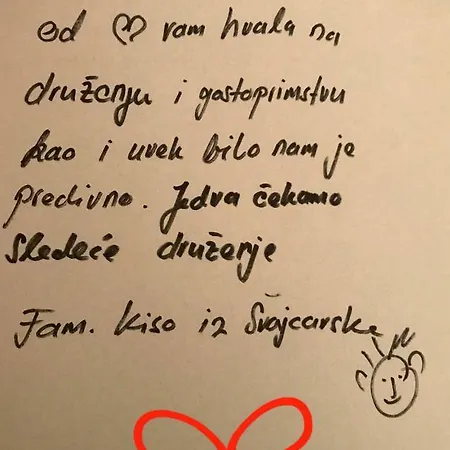 od ♡ vam hvala na
druženju i gostoprimstvu
kao i uvek bilo nam je
predivno. Jedva čekamo
sledeće druženje
Fam. Kiso iz Švajcarske